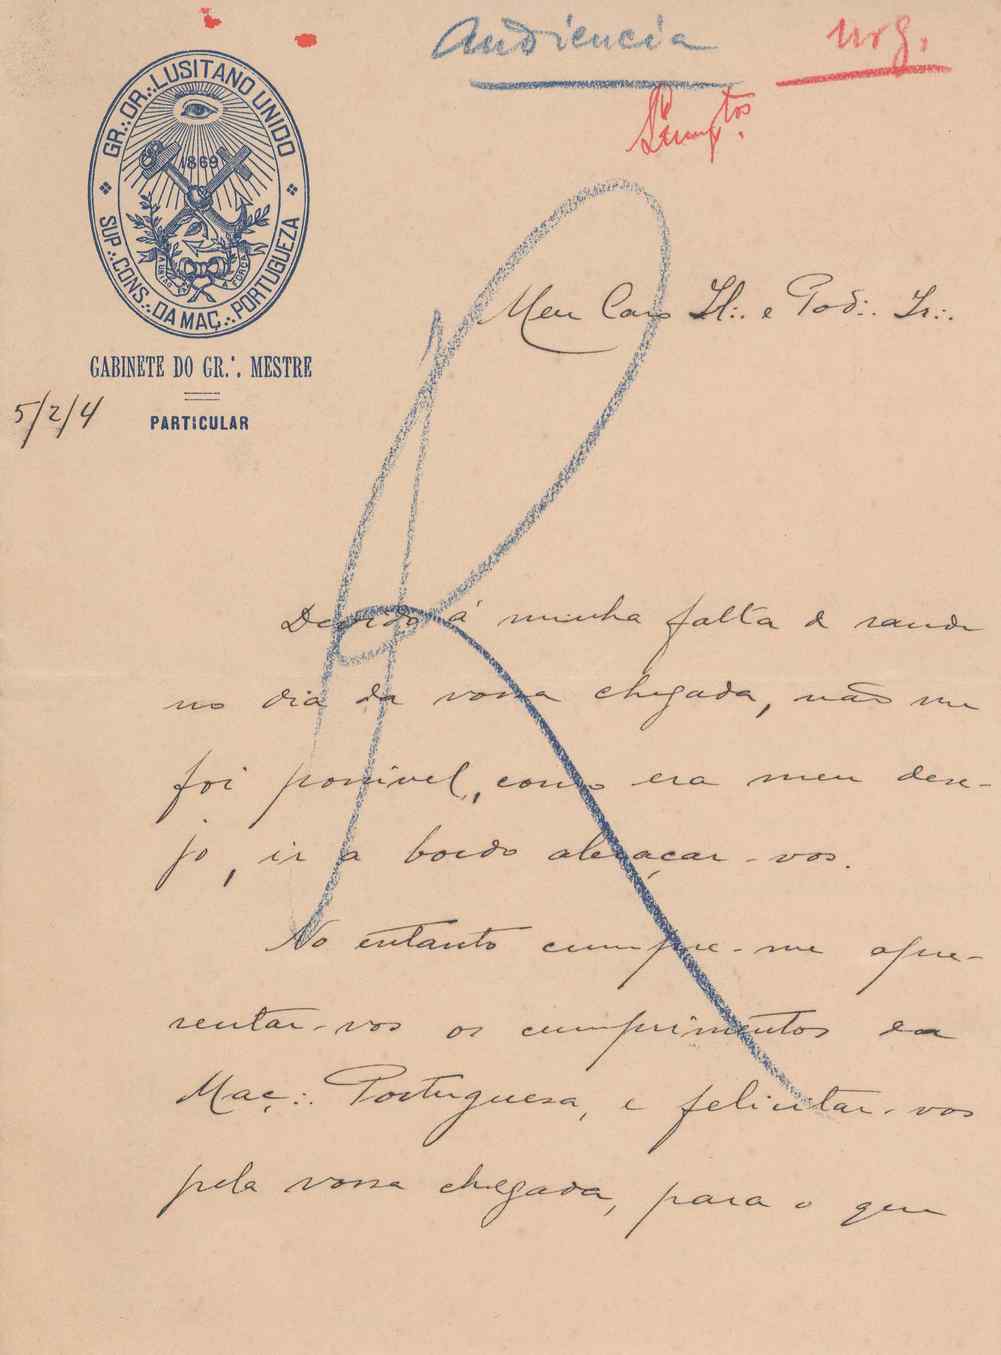 Audiencia
urg.
GR.·. OR.·. LUSITANO UNIDO
1869
SUP.·. CONS.·. DA MAÇ.·. PORTUGUEZA
GABINETE DO GR.·. MESTRE
PARTICULAR
5/2/4
R
Meu Caro Il∴ e Pod∴ Ir∴
Devido á minha falta de saude
no dia da vossa chegada, não me
foi possivel, como era meu dese-
jo, ir a bordo abraçar-vos.
No entanto cumpre-me apre-
sentar-vos os cumprimentos da
Maç∴ Portuguesa, e felicitar-vos
pela vossa chegada, para o que